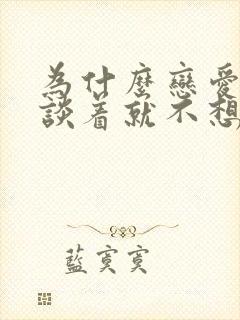 為什麼戀愛
談着就不想
藍寞寞